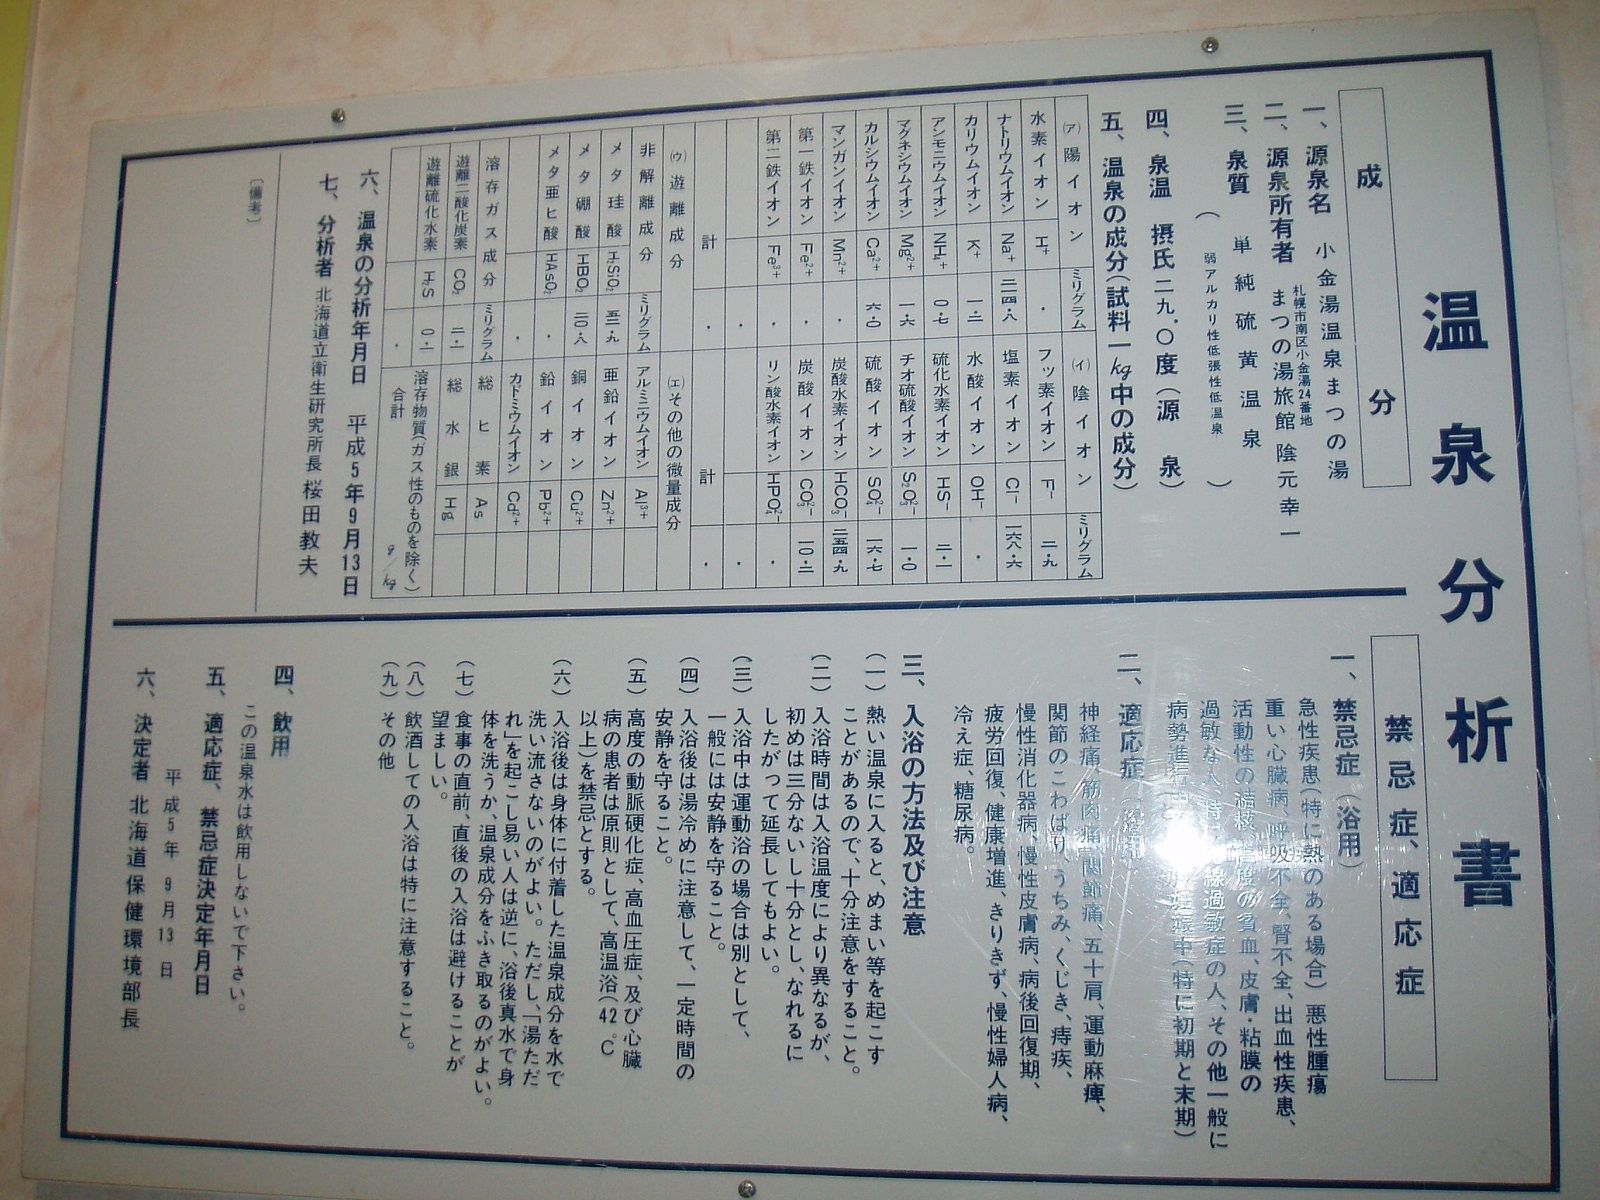 温泉分析書
成分
一、源泉名 小金湯温泉まつの湯
二、源泉所有者 札幌市南区小金湯24番地
まつの湯旅館 陰元幸一
三、泉質 単純硫黄温泉
（弱アルカリ性低張性低温泉）
四、泉温 摂氏二九.〇度（源泉）
五、温泉の成分（試料一kg中の成分）
(ア)陽イオン ミリグラム
水素イオン H+ .
ナトリウムイオン Na+ 二一四.八
カリウムイオン K+ 一.二
アンモニウムイオン NH4+ 〇.七
マグネシウムイオン Mg2+ 一.六
カルシウムイオン Ca2+ 六.〇
マンガンイオン Mn2+ .
第一鉄イオン Fe2+ .
第二鉄イオン Fe3+ .
計 .
(イ)陰イオン ミリグラム
フッ素イオン F- 二.九
塩素イオン Cl- 一六八.六
水酸イオン OH- .
硫化水素イオン HS- 二.一
チオ硫酸イオン S2O3 2- 一.〇
硫酸イオン SO4 2- 一六.七
炭酸水素イオン HCO3- 二五四.九
炭酸イオン CO3 2- 一〇.二
リン酸水素イオン HPO4 2- .
計 .
(ウ)遊離成分
非解離成分 ミリグラム
メタ珪酸 H2SiO3 五二.九
メタ硼酸 HBO2 二〇.八
メタ亜ヒ酸 HAsO2 .
溶存ガス成分 ミリグラム
遊離二酸化炭素 CO2 二.一
遊離硫化水素 H2S 〇.一
(エ)その他の微量成分
アルミニウムイオン Al3+
亜鉛イオン Zn2+
銅イオン Cu2+
鉛イオン Pb2+
カドミウムイオン Cd2+
総ヒ素 As
総水銀 Hg
溶存物質（ガス性のものを除く）
合計 g/kg
六、温泉の分析年月日 平成5年9月13日
七、分析者 北海道立衛生研究所長 桜田教夫
〔備考〕
禁忌症、適応症
一、禁忌症（浴用）
急性疾患（特に熱のある場合）悪性腫瘍
重い心臓病、呼吸不全、腎不全、出血性疾患、
活動性の結核、高度の貧血、皮膚・粘膜の
過敏な人、特に光線過敏症の人、その他一般に
病勢進行中、妊娠中（特に初期と末期）
二、適応症（浴用）
神経痛、筋肉痛、関節痛、五十肩、運動麻痺、
関節のこわばり、うちみ、くじき、痔疾、
慢性消化器病、慢性皮膚病、病後回復期、
疲労回復、健康増進、きりきず、慢性婦人病、
冷え症、糖尿病。
三、入浴の方法及び注意
（一）熱い温泉に入ると、めまい等を起こす
ことがあるので、十分注意をすること。
（二）入浴時間は入浴温度により異なるが、
初めは三分ないし十分とし、なれるに
したがって延長してもよい。
（三）入浴中は運動浴の場合は別として、
一般には安静を守ること。
（四）入浴後は湯冷めに注意して、一定時間の
安静を守ること。
（五）高度の動脈硬化症、高血圧症、及び心臓
病の患者は原則として、高温浴（42℃
以上）を禁忌とする。
（六）入浴後は身体に付着した温泉成分を水で
洗い流さないのがよい。ただし、「湯ただ
れ」を起こし易い人は逆に、浴後真水で身
体を洗うか、温泉成分をふき取るのがよい。
（七）食事の直前、直後の入浴は避けることが
望ましい。
（八）飲酒しての入浴は特に注意すること。
（九）その他
四、飲用
この温泉水は飲用しないで下さい。
五、適応症、禁忌症決定年月日
平成5年9月13日
六、決定者 北海道保健環境部長